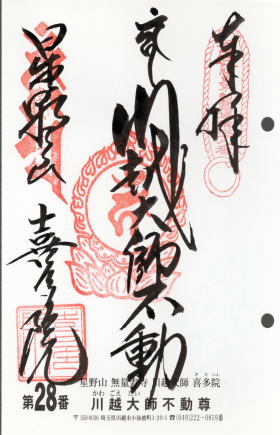 奉拝
川越大師不動
星野山
喜多院
星野山 無量寿寺 川越大師 喜多院
きたいん
かわごえだい
川越大師不動尊
第28番
〒350-0036 埼玉県川越市小仙波町1-20-1 ☎(049)222-0859番